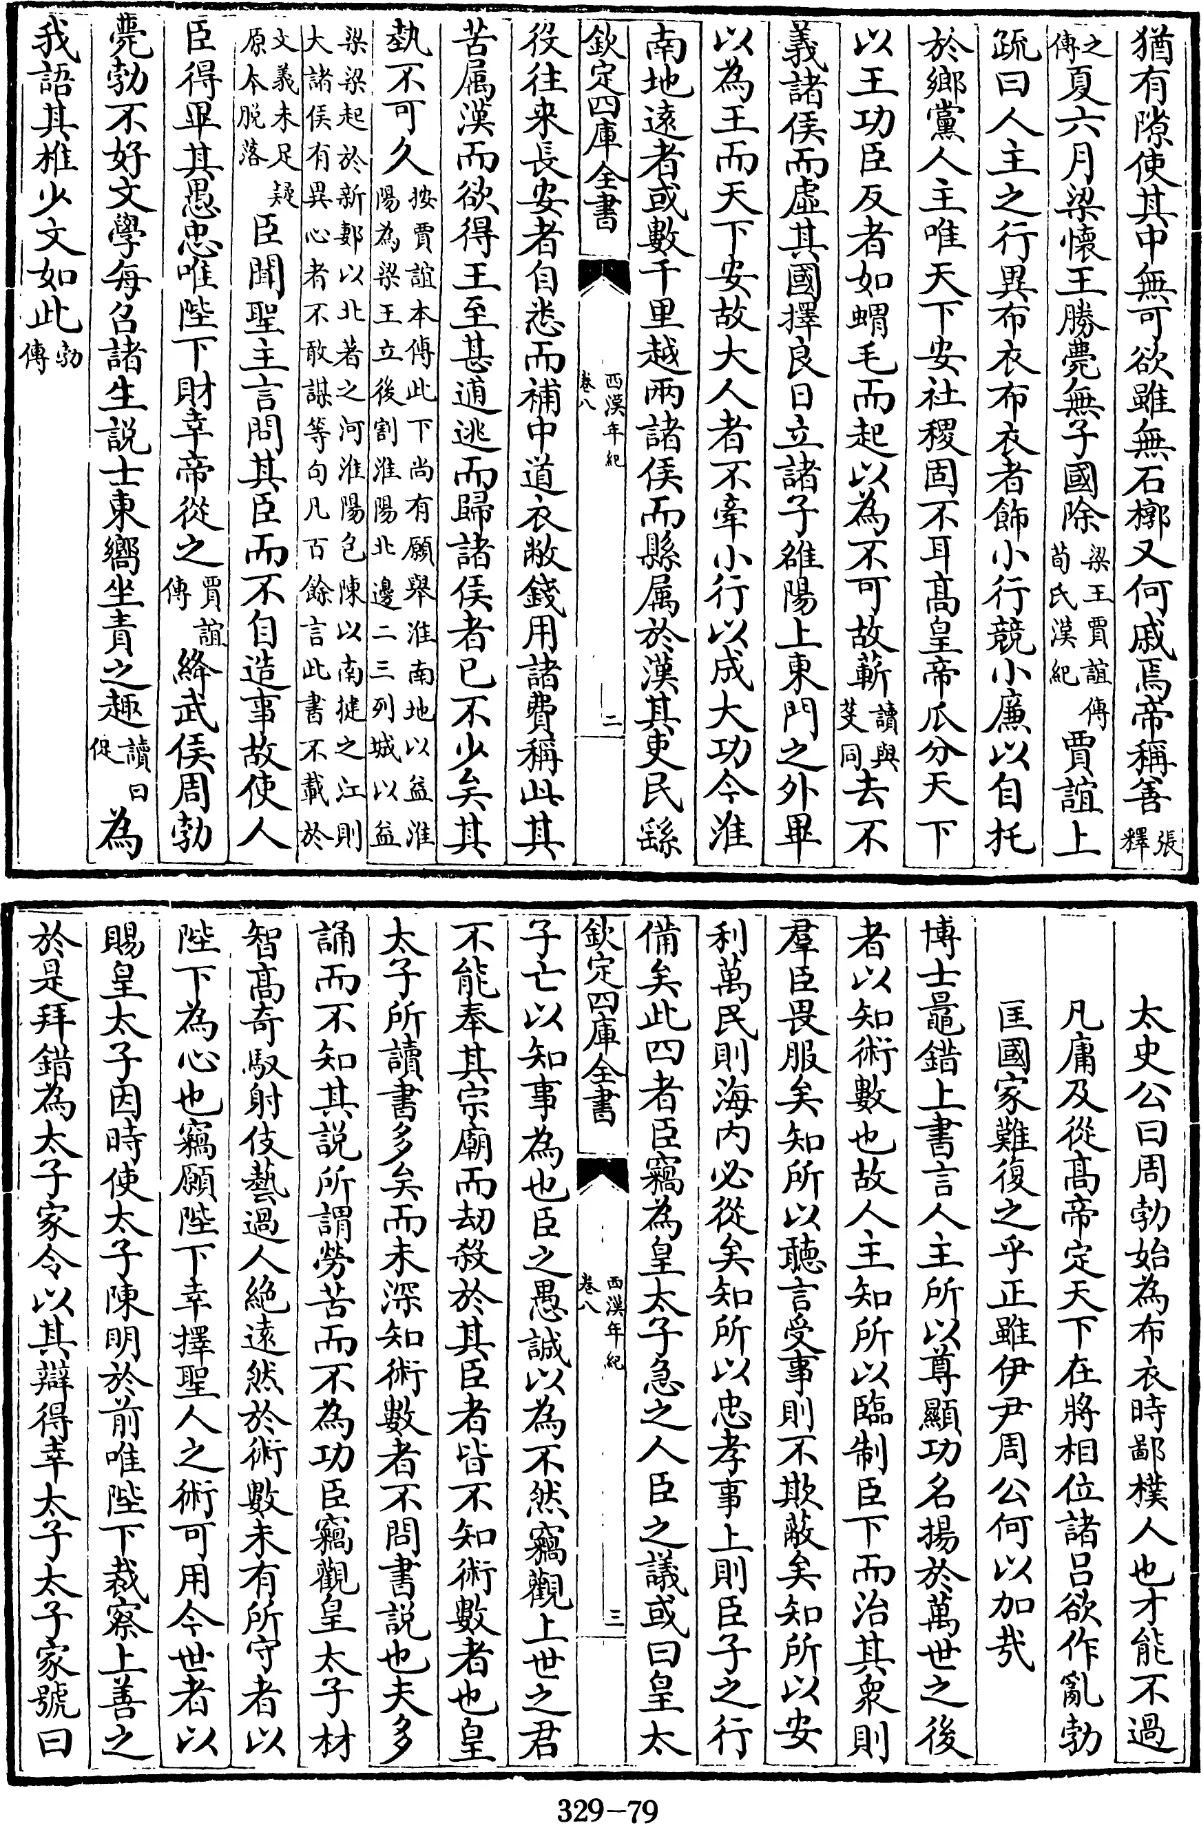 猶有隙使其中無可欲雖無石槨又何戚焉帝稱善張釋
之傳夏六月梁懷王勝薨無子國除梁王賈誼傳荀氏漢紀賈誼上
疏曰人主之行異布衣布衣者飾小行競小廉以自托
於鄉黨人主唯天下安社稷固不耳髙皇帝瓜分天下
以王功臣反者如蝟毛而起以為不可故蘄讀與芟同去不
義諸侯而虛其國擇良日立諸子雒陽上東門之外畢
以為王而天下安故大人者不牽小行以成大功今淮
南地遠者或數千里越兩諸侯而縣屬於漢其吏民繇
欽定四庫全書
西漢年紀
卷八
二
役往來長安者自悉而補中道衣敝錢用諸費稱此其
苦屬漢而欲得王至甚逋逃而歸諸侯者已不少矣其
埶不可久按賈誼本傳此下尚有願舉淮南地以益淮陽為梁王立後割淮陽北邊二三列城以益
梁梁起於新郪以北者之河淮陽包陳以南揵之江則大諸侯有異心者不敢謀等句凡百餘言此書不載於
文義未足疑原本脱落臣聞聖主言問其臣而不自造事故使人
臣得畢其愚忠唯陛下財幸帝從之賈誼傳絳武侯周勃
薨勃不好文學每召諸生説士東嚮坐責之趣讀曰促為
我語其椎少文如此勃傳
太史公曰周勃始為布衣時鄙樸人也才能不過
凡庸及從髙帝定天下在將相位諸呂欲作亂勃
匡國家難復之乎正雖伊尹周公何以加㢤
博士鼂錯上書言人主所以尊顯功名揚於萬世之後
者以知術數也故人主知所以臨制臣下而治其衆則
羣臣畏服矣知所以聽言受事則不欺蔽矣知所以安
利萬民則海内必從矣知所以忠孝事上則臣子之行
備矣此四者臣竊為皇太子急之人臣之議或曰皇太
欽定四庫全書
西漢年紀
卷八
三
子亡以知事為也臣之愚誠以為不然竊觀上世之君
不能奉其宗廟而劫殺於其臣者皆不知術數者也皇
太子所讀書多矣而未深知術數者不問書説也夫多
誦而不知其説所謂勞苦而不為功臣竊觀皇太子材
智髙奇馭射伎藝過人絶遠然於術數未有所守者以
陛下為心也竊願陛下幸擇聖人之術可用今世者以
賜皇太子因時使太子陳明於前唯陛下裁察上善之
於是拜錯為太子家令以其辯得幸太子太子家號曰
329-79